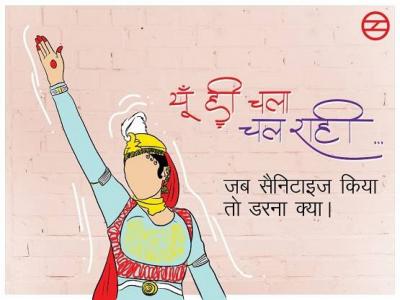 यूँ ही चला
चल राही...
जब सैनिटाइज किया
तो डरना क्या।